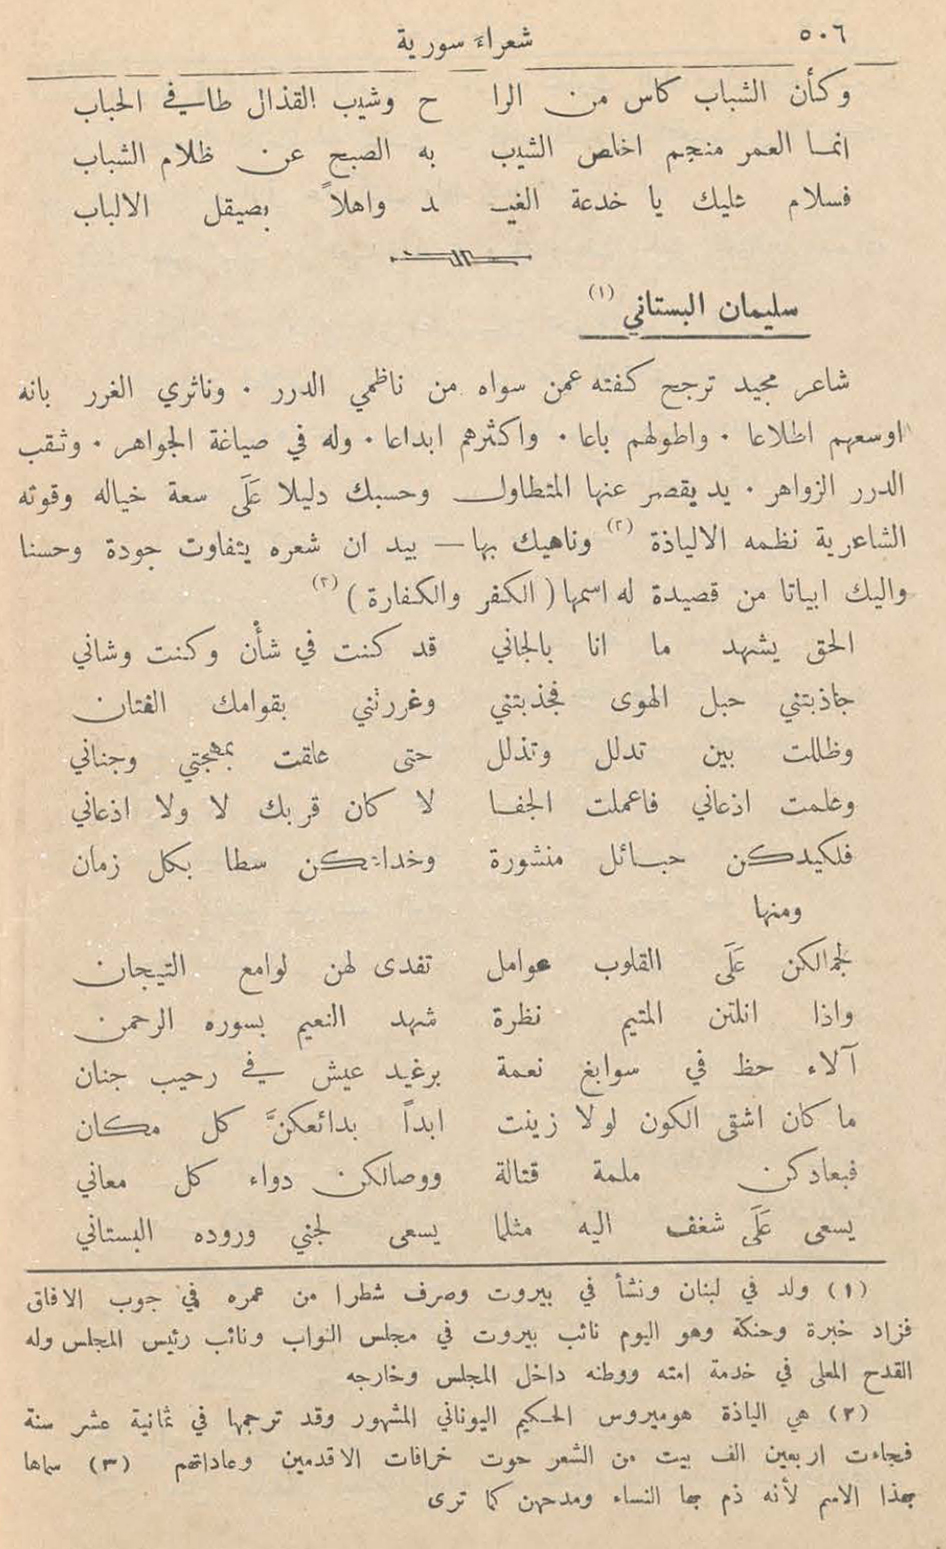 ٥٠٦
شعراء سورية
وكأن الشباب كاس من الرا ح وشيب القذال طافي الحباب
انما العمر منجم اخلص الشيب به الصبح عن ظلام الشباب
فسلام عليك يا خدعة الغيـ ـد واهلاً بصيقل الالباب
سليمان البستاني (١)
شاعر مجيد ترجح كفته عمن سواه من ناظمي الدرر ٠ وناثري الغرر بانه
اوسعهم اطلاعا ٠ واطولهم باعا ٠ واكثرهم ابداعا ٠ وله في صياغة الجواهر ٠ وثقب
الدرر الزواهر ٠ يد يقصر عنها المتطاول وحسبك دليلا عَلَى سعة خياله وقوته
الشاعرية نظمه الالياذة (٢) وناهيك بها — بيد ان شعره يتفاوت جودة وحسنا
واليك ابياتا من قصيدة له اسمها (الكفر والكفارة) (٣)
الحق يشهد ما انا بالجاني قد كنت في شأن وكنت وشاني
جاذبتني حبل الهوى فجذبتني وغررتني بقوامك الفتان
وظللت بين تدلل وتذلل حتى علقت بمهجتي وجناني
وعلمت اذعاني فاعملت الجفا لا كان قربك لا ولا اذعاني
فلكيدكن حبائل منشورة وخداعكن سطا بكل زمان
ومنها
لجمالكن عَلَى القلوب عوامل تفدى لهن لوامع التيجان
واذا انلتن المتيم نظرة شهد النعيم بسوره الرحمن
آلاء حظ في سوابغ نعمة برغيد عيش في رحيب جنان
ما كان اشقى الكون لولا زينت ابداً بدائعكنَّ كل مكان
فبعادكن ملمة قتالة ووصالكن دواء كل معاني
يسعى عَلَى شغف اليه مثلما يسعى لجني وروده البستاني
(١) ولد في لبنان ونشأ في بيروت وصرف شطرا من عمره في جوب الافاق
فزاد خبرة وحنكة وهو اليوم نائب بيروت في مجلس النواب ونائب رئيس المجلس وله
القدح المعلى في خدمة امته ووطنه داخل المجلس وخارجه
(٢) هي الياذة هوميروس الحكيم اليوناني المشهور وقد ترجمها في ثمانية عشر سنة
فجاءت اربعين الف بيت من الشعر حوت خرافات الاقدمين وعاداتهم (٣) سماها
بهذا الاسم لأنه ذم بها النساء ومدحهن كما ترى